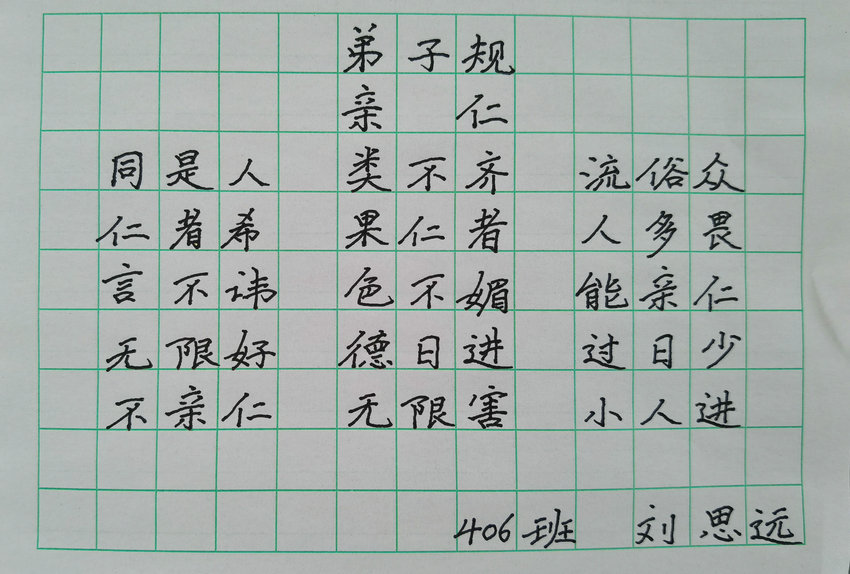 弟子规
亲仁
同是人 类不齐 流俗众
仁者希 果仁者 人多畏
言不讳 色不媚 能亲仁
无限好 德日进 过日少
不亲仁 无限害 小人进
406班 刘思远